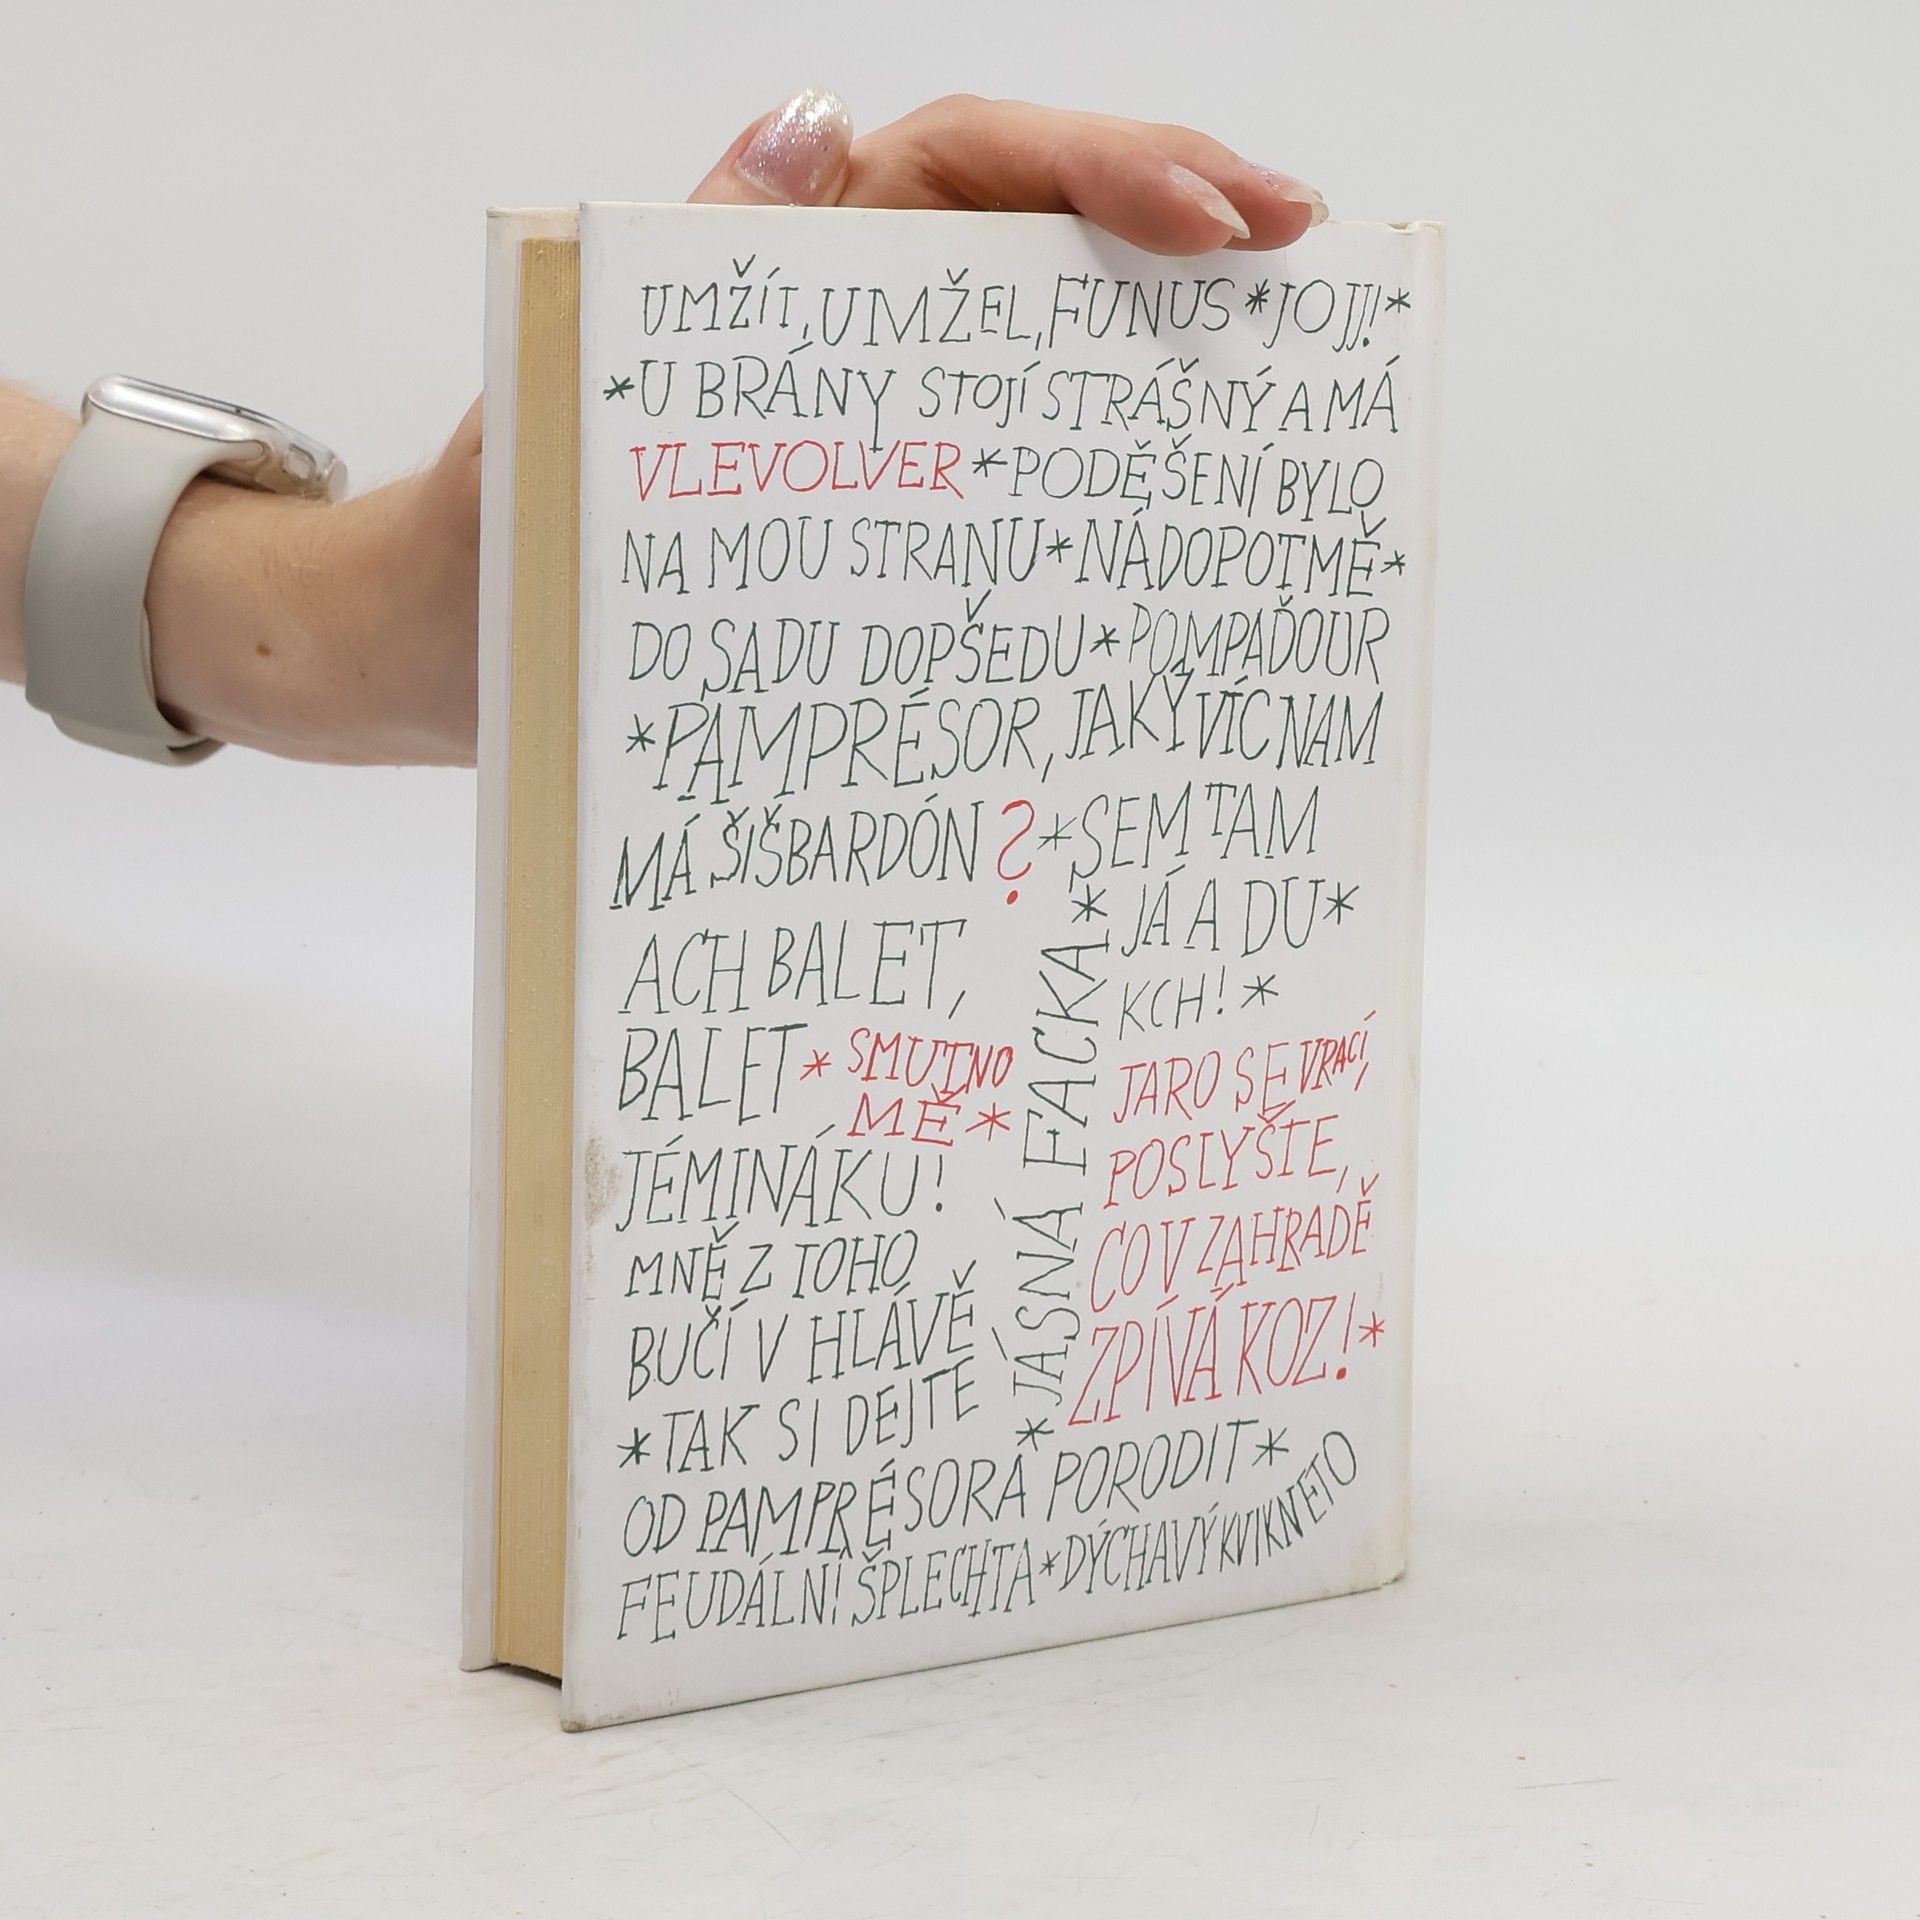 UMŽÍT, UMŽEL, FUNUS * JOJJ! *
* U BRÁNY STOJÍ STRÁŠNÝ A MÁ
VLEVOLVER * PODĚŠENÍ BYLO
NA MOU STRANU * NÁDOPOTMĚ *
DO SADU DOPŠEDU * POMPAĎOUR
* PAMPRÉSOR, JAKÝ VÍC NAM
MÁ ŠIŠBARDÓN ? * SEM TAM
JÁ A DU *
KCH! *
ACH BALET,
BALET * SMUTNO
MĚ *
JÉMINÁKU!
MNĚ Z TOHO
BUČÍ V HLÁVĚ
* JASNÁ FACKA *
JARO SE VRACÍ,
POSLYŠTE,
CO V ZAHRADĚ
ZPÍVÁ KOZ! *
* TAK SI DEJTE
OD PAMPRÉSORA PORODIT *
FEUDÁLNÍ ŠPLECHTA * DÝCHAVÝ KVIKNETO